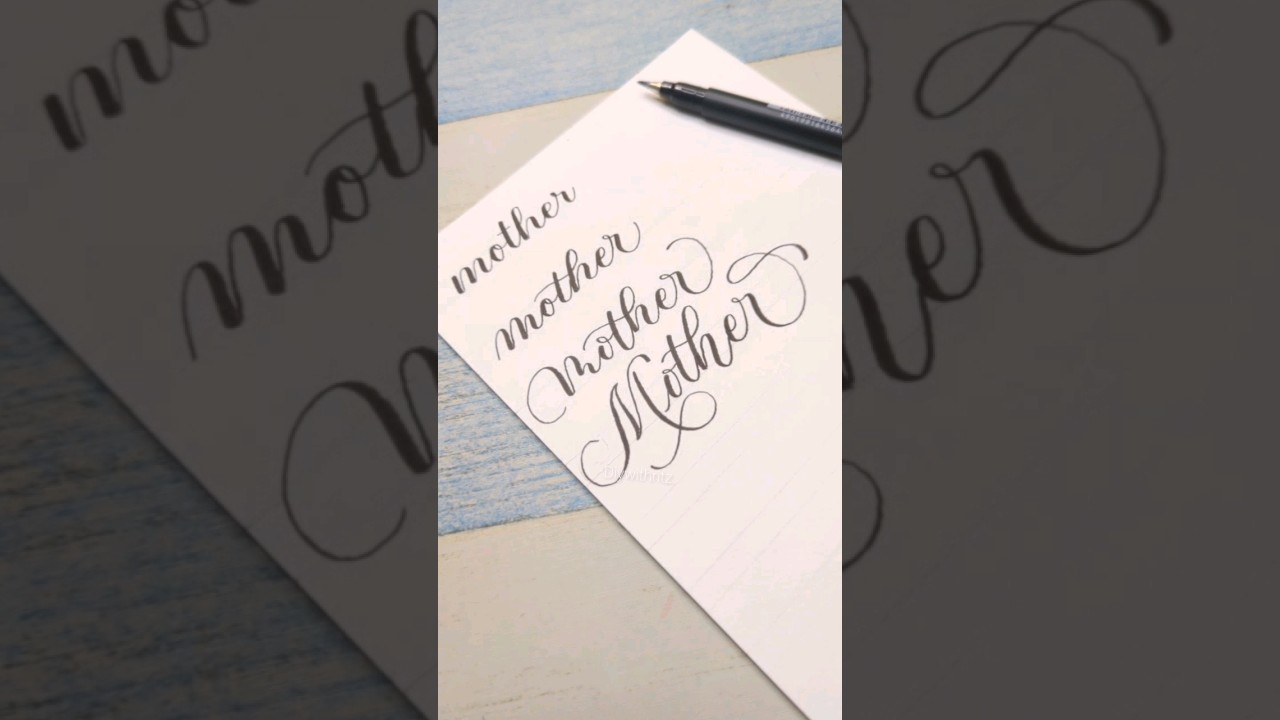 mother
mother
mother
Mother